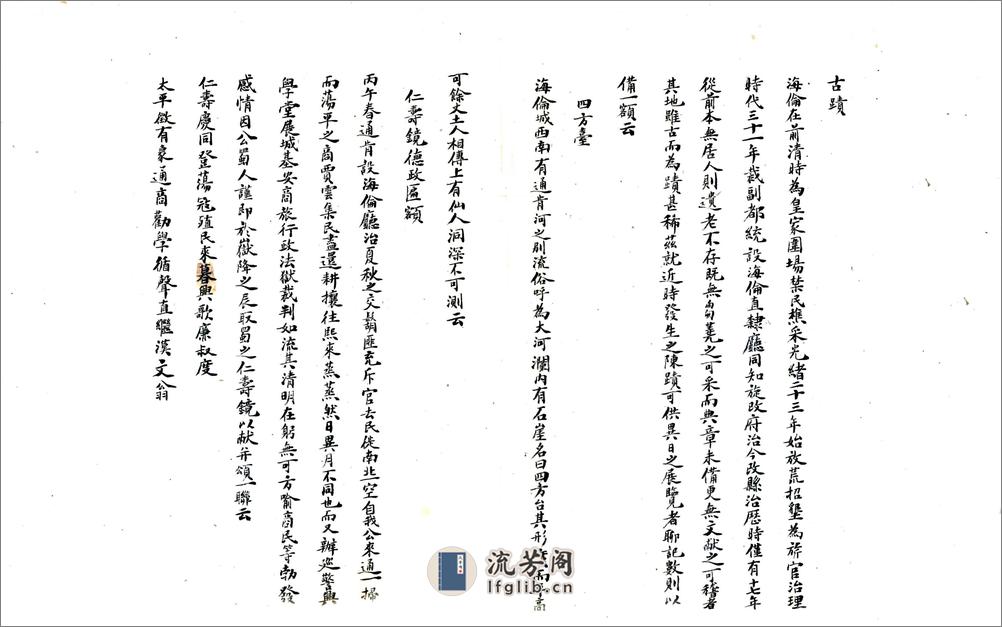 古蹟
海倫在前清時為皇家圍場禁民樵采光緒二十三年始放荒招墾為旂官治理
時代三十一年裁副都統設海倫直隸廳同知旋改府治今改縣治歷時僅有十七年
從前本無居人則遺老不存既無芻蕘之可采而典章未備更無文獻之可稽者
其地雖古而為蹟甚稀茲就近時發生之陳蹟可供異日之展覽者聊記數則以
備一額云
四方臺
海倫城西南有通肯河之別流俗呼為大河瀾內有石崖名曰四方台其形 而 高
可餘丈土人相傳上有仙人洞深不可測云
仁壽鏡德政匾額
丙午春通肯設海倫廳治夏秋之交鬍匪充斥官去民徙南北一空自我公來通一掃
而蕩平之商賈雲集民盡還耕攘往熙來蒸蒸然日異月不同也而又辦巡警興
學堂展城基安商旅行政法獄裁判如流其清明在躬無可方喻商民等勃發
感情因公蜀人謹即於嶽降之辰取蜀之仁壽鏡以献并頌一聯云
仁壽慶同登蕩寇殖民來暮興歌廉叔度
太平徵有象通商勸學循聲直繼漢文翁
流芳阁
lfglib.cn